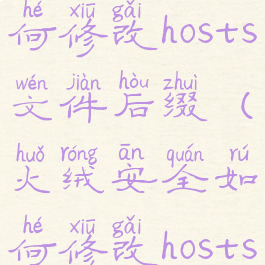 hé xiū gǎi
何修改hosts
wén jiàn hòu zhuì
文件后缀（
huǒ róng ān quán rú
火绒安全如
hé xiū gǎi
何修改hosts